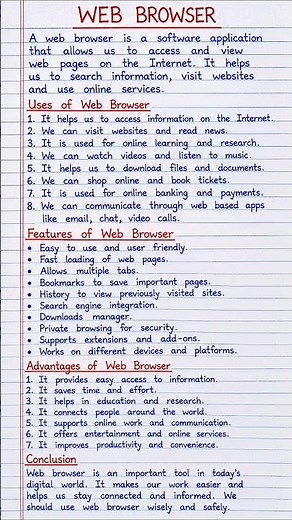 WEB BROWSER
A web browser is a software application
that allows us to access and view
web pages on the Internet. It helps
us to search information, visit websites
and use online services.
Uses of Web Browser
1. It helps us to access information on the Internet.
2. We can visit websites and read news.
3. It is used for online learning and research.
4. We can watch videos and listen to music.
5. It helps us to download files and documents.
6. We can shop online and book tickets.
7. It is used for online banking and payments.
8. We can communicate through web based apps
like email, chat, video calls.
Features of Web Browser
• Easy to use and user friendly.
• Fast loading of web pages.
• Allows multiple tabs.
• Bookmarks to save important pages.
• History to view previously visited sites.
• Search engine integration.
• Downloads manager.
• Private browsing for security.
• Supports extensions and add-ons.
• Works on different devices and platforms.
Advantages of Web Browser
1. It provides easy access to information.
2. It saves time and effort.
3. It helps in education and research.
4. It connects people around the world.
5. It supports online work and communication.
6. It offers entertainment and online services.
7. It improves productivity and convenience.
Conclusion
Web browser is an important tool in today's
digital world. It makes our work easier and
helps us stay connected and informed. We
should use web browser wisely and safely.